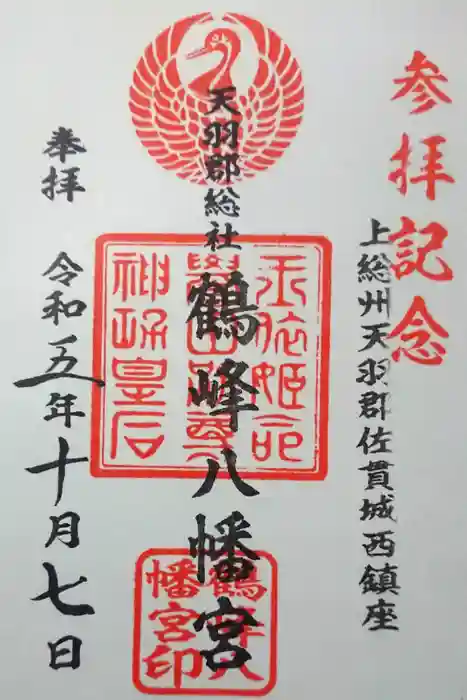 参拝記念
上総州天羽郡佐貫城西鎮座
天羽郡総社
鶴峰八幡宮
玉依姫命
神功皇后
鶴峯八
幡宮印
奉拝
令和五年十月七日